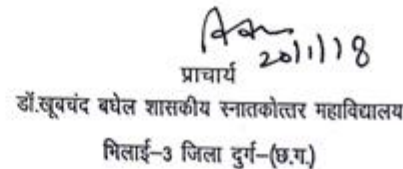 20/1/18
प्राचार्य
डॉ.खूबचंद बघेल शासकीय स्नातकोत्तर महाविद्यालय
भिलाई-3 जिला दुर्ग-(छ.ग.)